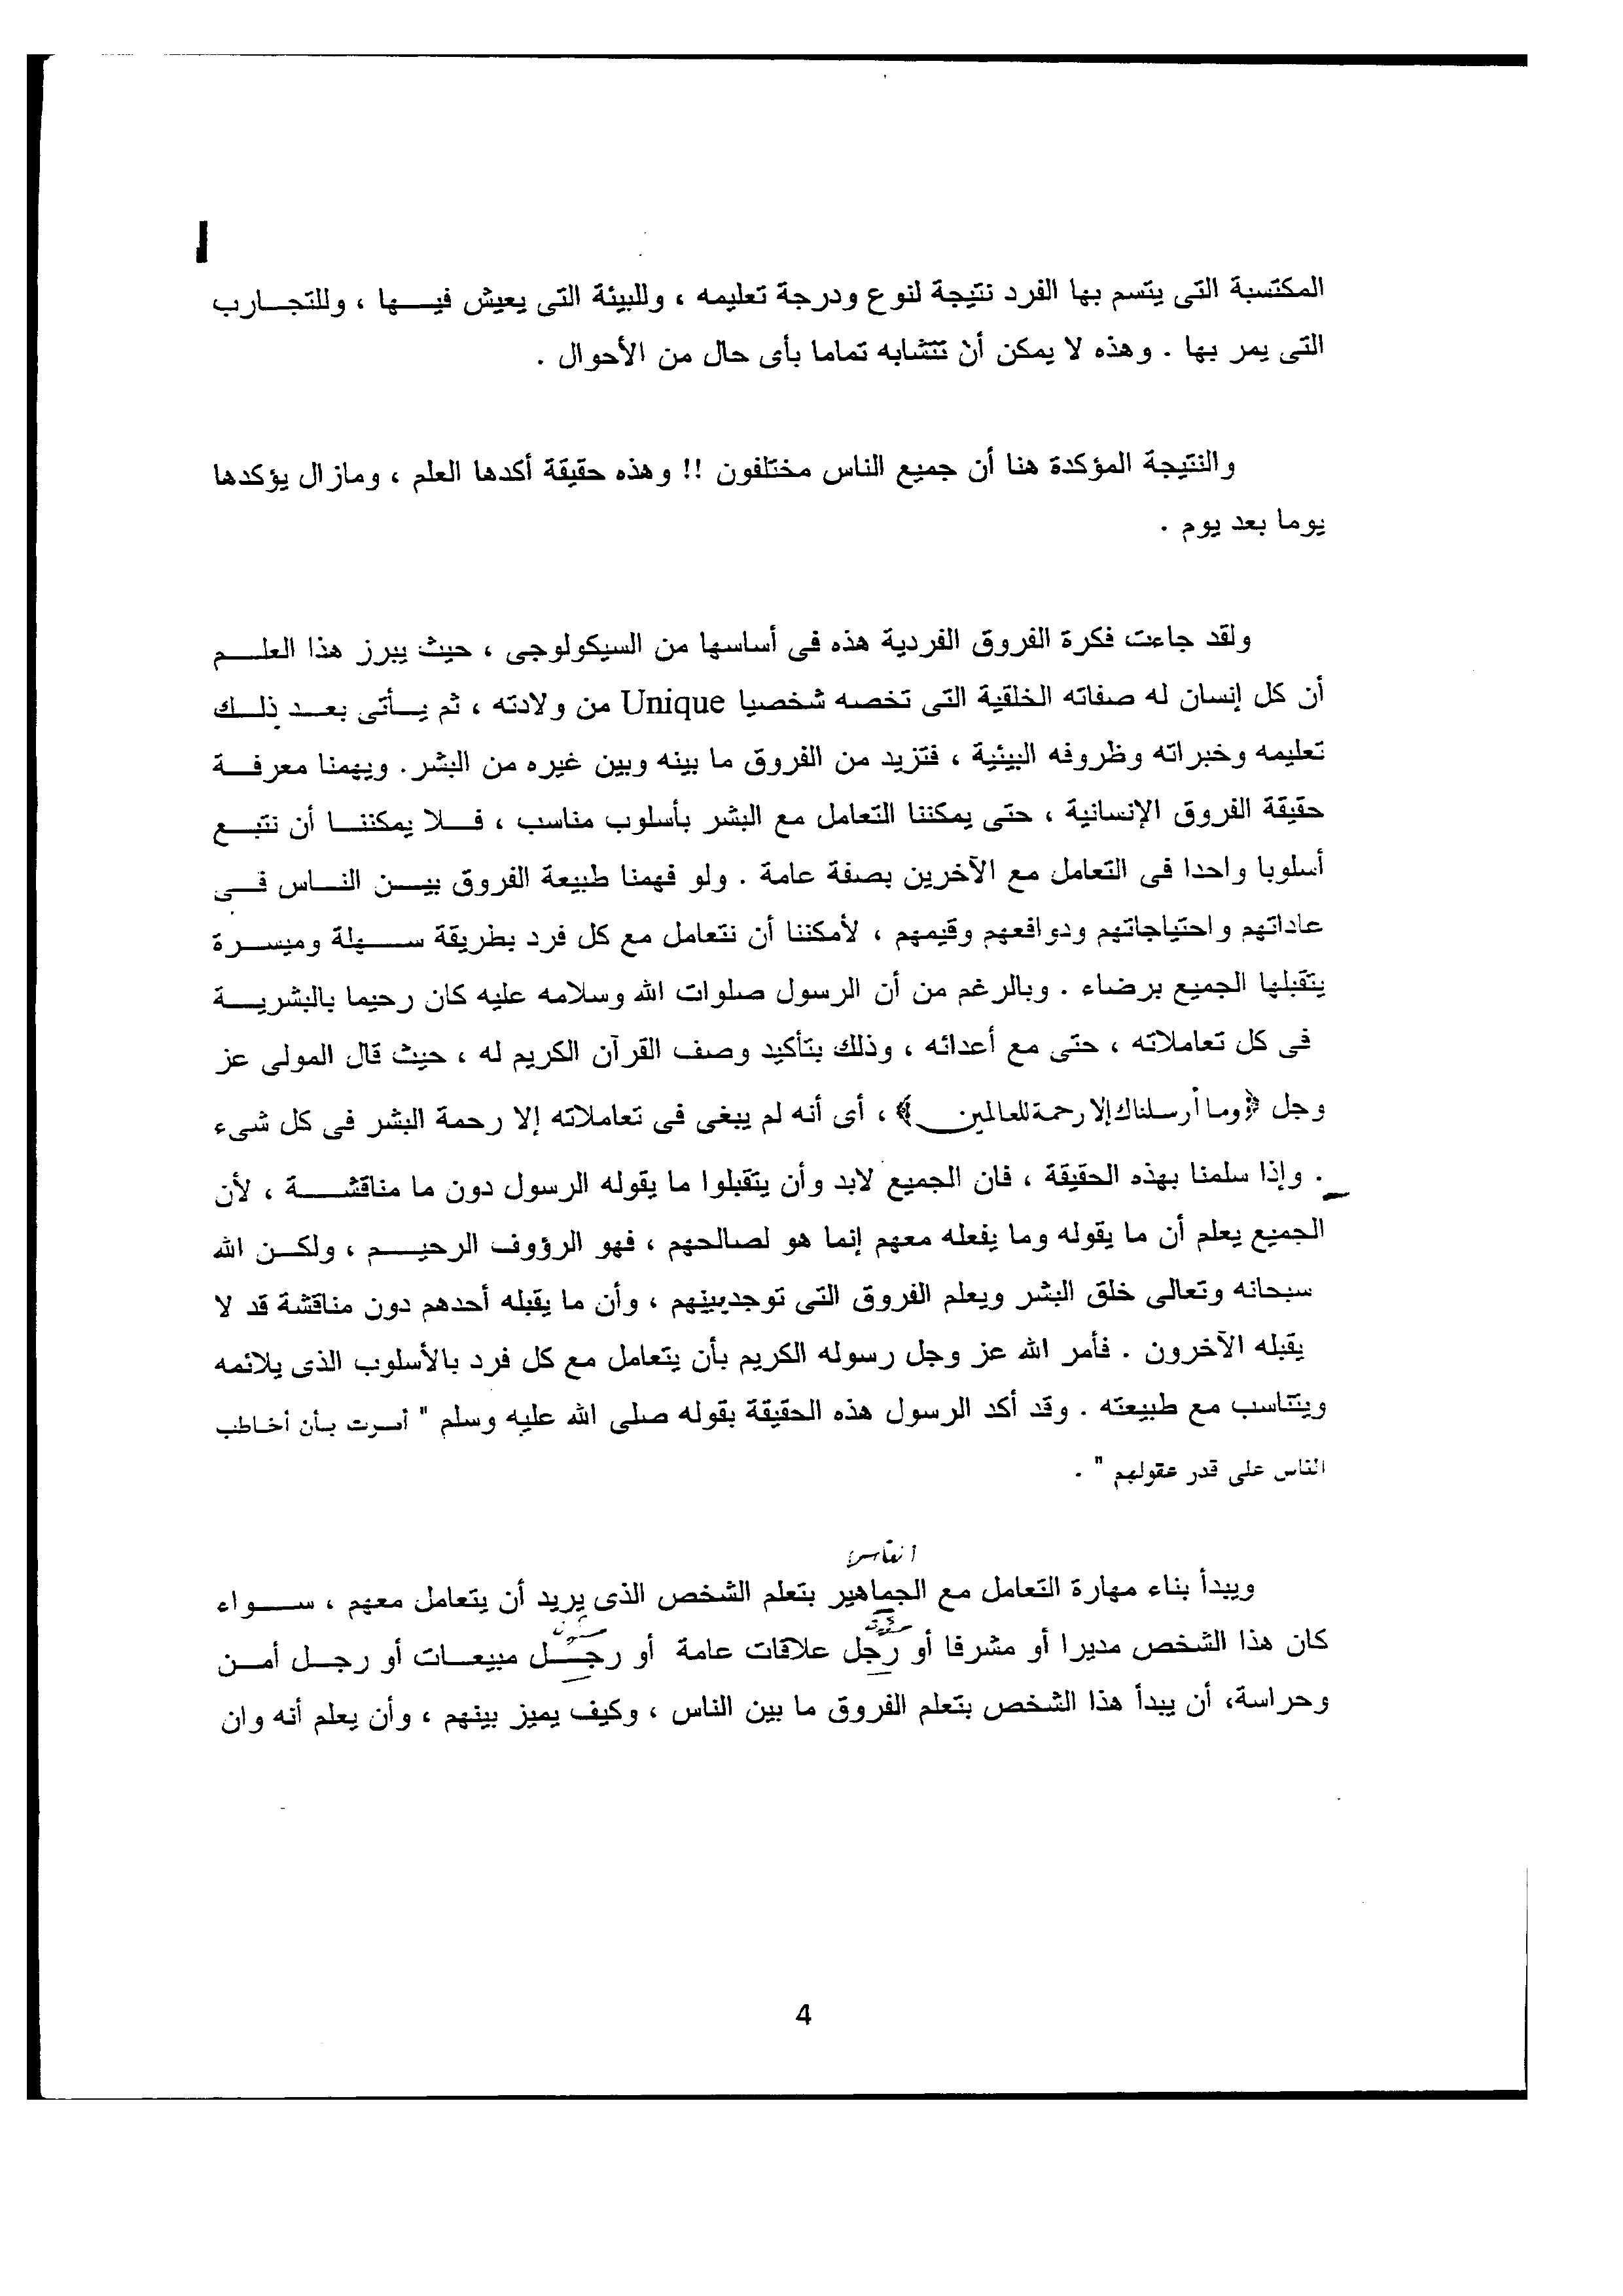 المكتسبة التى يتسم بها الفرد نتيجة لنوع ودرجة تعليمه ، وللبيئة التى يعيش فيها ، وللتجارب
التى يمر بها . وهذه لا يمكن أن تتشابه تماما بأى حال من الأحوال .
والنتيجة المؤكدة هنا أن جميع الناس مختلفون !! وهذه حقيقة أكدها العلم ، ومازال يؤكدها
يوما بعد يوم .
ولقد جاءت فكرة الفروق الفردية هذه فى أساسها من السيكولوجى ، حيث يبرز هذا العلم
أن كل إنسان له صفاته الخلقية التى تخصه شخصيا Unique من ولادته ، ثم يأتى بعد ذلك
تعليمه وخبراته وظروفه البيئية ، فتزيد من الفروق ما بينه وبين غيره من البشر. ويهمنا معرفة
حقيقة الفروق الإنسانية ، حتى يمكننا التعامل مع البشر بأسلوب مناسب ، فلا يمكننا أن نتبع
أسلوبا واحدا فى التعامل مع الآخرين بصفة عامة . ولو فهمنا طبيعة الفروق بين الناس فى
عاداتهم واحتياجاتهم ودوافعهم وقيمهم ، لأمكننا أن نتعامل مع كل فرد بطريقة سهلة وميسرة
يتقبلها الجميع برضاء . وبالرغم من أن الرسول صلوات الله وسلامه عليه كان رحيما بالبشرية
فى كل تعاملاته ، حتى مع أعدائه ، وذلك بتأكيد وصف القرآن الكريم له ، حيث قال المولى عز
وجل ﴿وما أرسلناك إلا رحمة للعالمين﴾ ، أى أنه لم يبغى فى تعاملاته إلا رحمة البشر فى كل شىء
. وإذا سلمنا بهذه الحقيقة ، فان الجميع لابد وأن يتقبلوا ما يقوله الرسول دون ما مناقشة ، لأن
الجميع يعلم أن ما يقوله وما يفعله معهم إنما هو لصالحهم ، فهو الرؤوف الرحيم ، ولكن الله
سبحانه وتعالى خلق البشر ويعلم الفروق التى توجدبينهم ، وأن ما يقبله أحدهم دون مناقشة قد لا
يقبله الآخرون . فأمر الله عز وجل رسوله الكريم بأن يتعامل مع كل فرد بالأسلوب الذى يلائمه
ويتناسب مع طبيعته . وقد أكد الرسول هذه الحقيقة بقوله صلى الله عليه وسلم " أمرت بأن أخاطب
الناس على قدر عقولهم " .
الناس
ويبدأ بناء مهارة التعامل مع الجماهير بتعلم الشخص الذى يريد أن يتعامل معهم ، سواء
كان هذا الشخص مديرا أو مشرفا أو رجل علاقات عامة أو رجل مبيعات أو رجل أمن
وحراسة، أن يبدأ هذا الشخص بتعلم الفروق ما بين الناس ، وكيف يميز بينهم ، وأن يعلم أنه وان
4